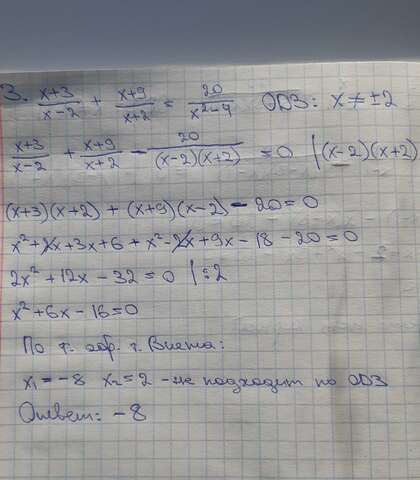 3. x+3/x-2 + x+9/x+2 = 20/x²-4 ОДЗ: x ≠ ±2
x+3/x-2 + x+9/x+2 - 20/(x-2)(x+2) = 0 |(x-2)(x+2)
(x+3)(x+2) + (x+9)(x-2) - 20 = 0
x² + 2x + 3x + 6 + x² - 2x + 9x - 18 - 20 = 0
2x² + 12x - 32 = 0 |:2
x² + 6x - 16 = 0
По т. обр. т. Виета:
x₁ = -8 x₂ = 2 - не подходит по ОДЗ
Ответ: -8